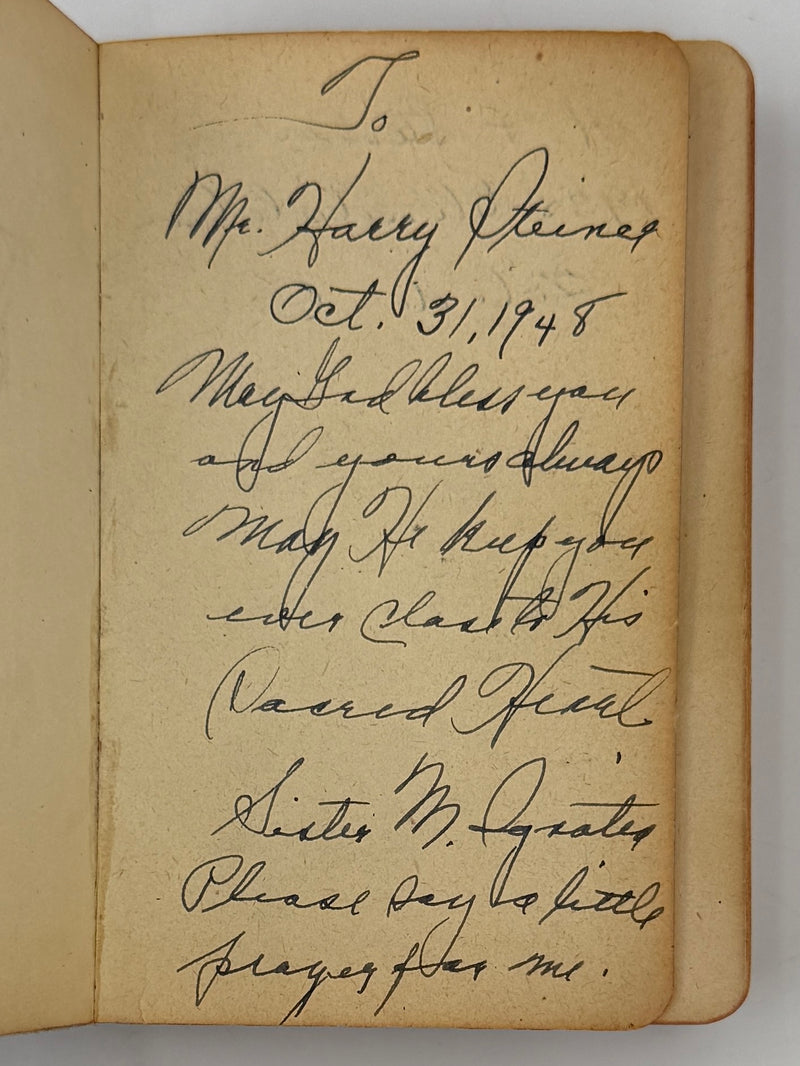 To
Mr. Harry Steines
Oct. 31, 1948
May God bless you
and yours always
May He keep you
ever close to His
Sacred Heart
Sister M. Ignatia
Please say a little
prayer for me.